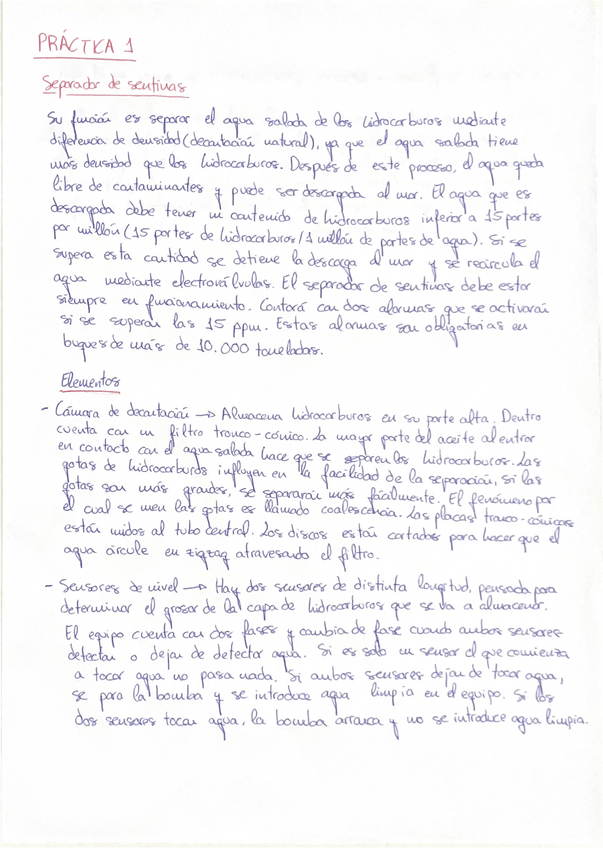 PRÁCTICA 1
Separador de sentinas
Su función es separar el agua salada de los hidrocarburos mediante
diferencia de densidad (decantación natural), ya que el agua salada tiene
más densidad que los hidrocarburos. Después de este proceso, el agua queda
libre de contaminantes y puede ser descargada al mar. El agua que es
descargada debe tener un contenido de hidrocarburos inferior a 15 partes
por millón (15 partes de hidrocarburos/1 millón de partes de agua). Si se
supera esta cantidad se detiene la descarga al mar y se recircula el
agua mediante electroválvulas. El separador de sentinas debe estar
siempre en funcionamiento. Contará con dos alarmas que se activarán
si se superan las 15 ppm. Estas alarmas son obligatorias en
buques de más de 10.000 toneladas.
Elementos
- Cámara de decantación → Almacena hidrocarburos en su parte alta. Dentro
cuenta con un filtro tronco-cónico. La mayor parte del aceite al entrar
en contacto con el agua salada hace que se separen los hidrocarburos. Las
gotas de hidrocarburos influyen en la facilidad de la separación, si las
gotas son más grandes, se separarán más fácilmente. El fenómeno por
el cual se unen las gotas es llamado coalescencia. Las placas tronco-cónicas
están unidos al tubo central. Los discos están cortados para hacer que el
agua circule en zigzag atravesando el filtro.
- Sensores de nivel → Hay dos sensores de distinta longitud, pensada para
determinar el grosor de la capa de hidrocarburos que se va a almacenar.
El equipo cuenta con dos fases y cambia de fase cuando ambos sensores
detectan o dejan de detectar agua. Si es solo un sensor el que comienza
a tocar agua no pasa nada. Si ambos sensores dejan de tocar agua,
se para la bomba y se introduce agua limpia en el equipo. Si los
dos sensores tocan agua, la bomba arranca y no se introduce agua limpia.